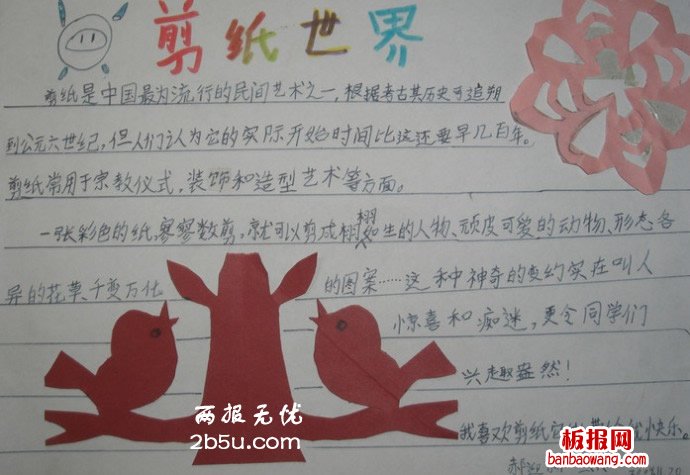 剪纸世界
剪纸是中国最为流行的民间艺术之一,根据考古其历史可追朔
到公元六世纪,但人们认为它的实际开始时间比这还要早几百年。
剪纸常用于宗教仪式,装饰和造型艺术等方面。
一张彩色的纸,寥寥数剪,就可以剪成栩栩如生的人物、顽皮可爱的动物、形态各
异的花草、千变万化 的图案……这种神奇的 实在叫人
惊喜和痴迷,更令同学们
兴趣盎然!
我喜欢剪纸它 快乐。
两报无忧
2b5u.com
板报网
banbaowang.com